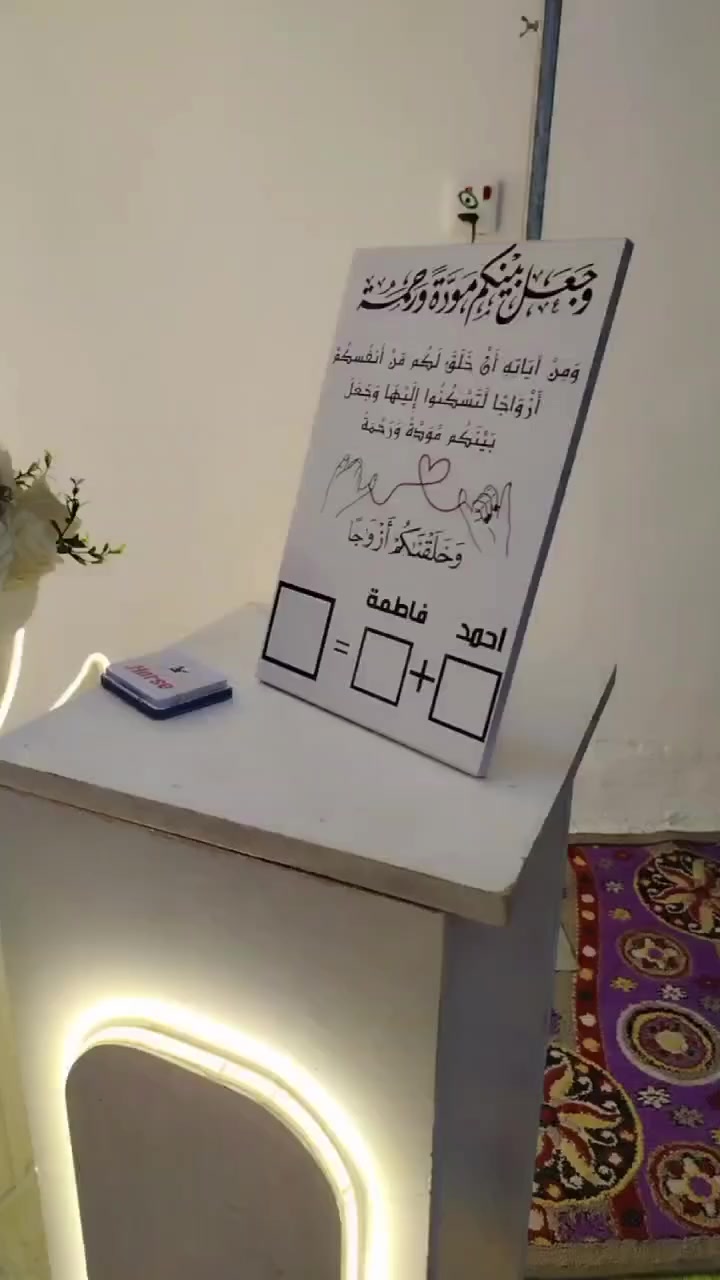 وَجَعَلَ بَيْنَكُم مَوَدَّةً وَرَحْمَةً
وَمِنْ آيَاتِهِ أَنْ خَلَقَ لَكُم مِّنْ أَنفُسِكُمْ
أَزْوَاجًا لِّتَسْكُنُوا إِلَيْهَا وَجَعَلَ
بَيْنَكُم مَّوَدَّةً وَرَحْمَةً
وَخَلَقْنَاكُمْ أَزْوَاجًا
احمد فاطمة
+ =
Horse